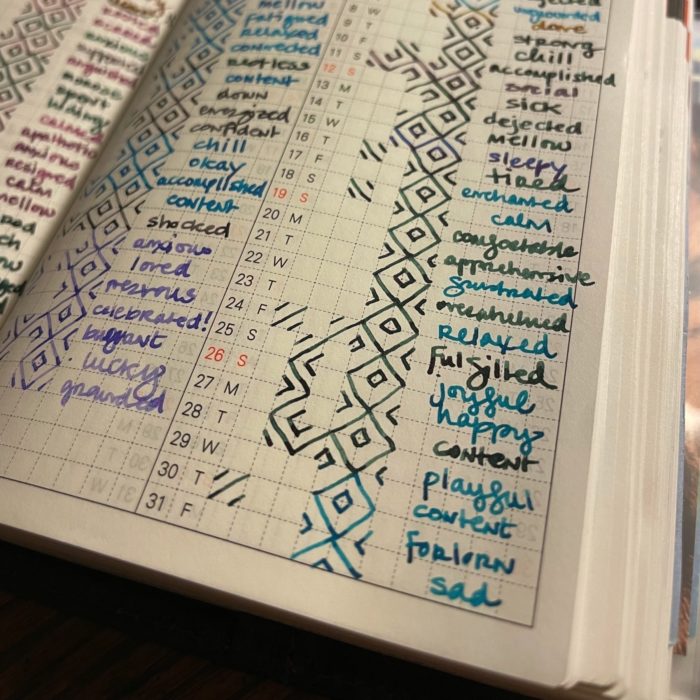 anxious
resigned
calm
mellow
mellow
fatigued
relaxed
connected
restless
content
down
energized
confident
chill
okay
accomplished
content
shocked
anxious
loved
nervous
celebrated!
buoyant
lucky
grounded
8 W
9 T
10 F
11 S
12 S
13 M
14 T
15 W
16 T
17 F
18 S
19 S
20 M
21 T
22 W
23 T
24 F
25 S
26 S
27 M
28 T
29 W
30 T
31 F
ungrounded
done
strong
chill
accomplished
social
sick
dejected
mellow
sleepy
tired
enchanted
calm
comfortable
apprehensive
frustrated
overwhelmed
Relaxed
Fulfilled
Joyful
happy
CONTENT
playful
CONTENT
FORLORN
sad